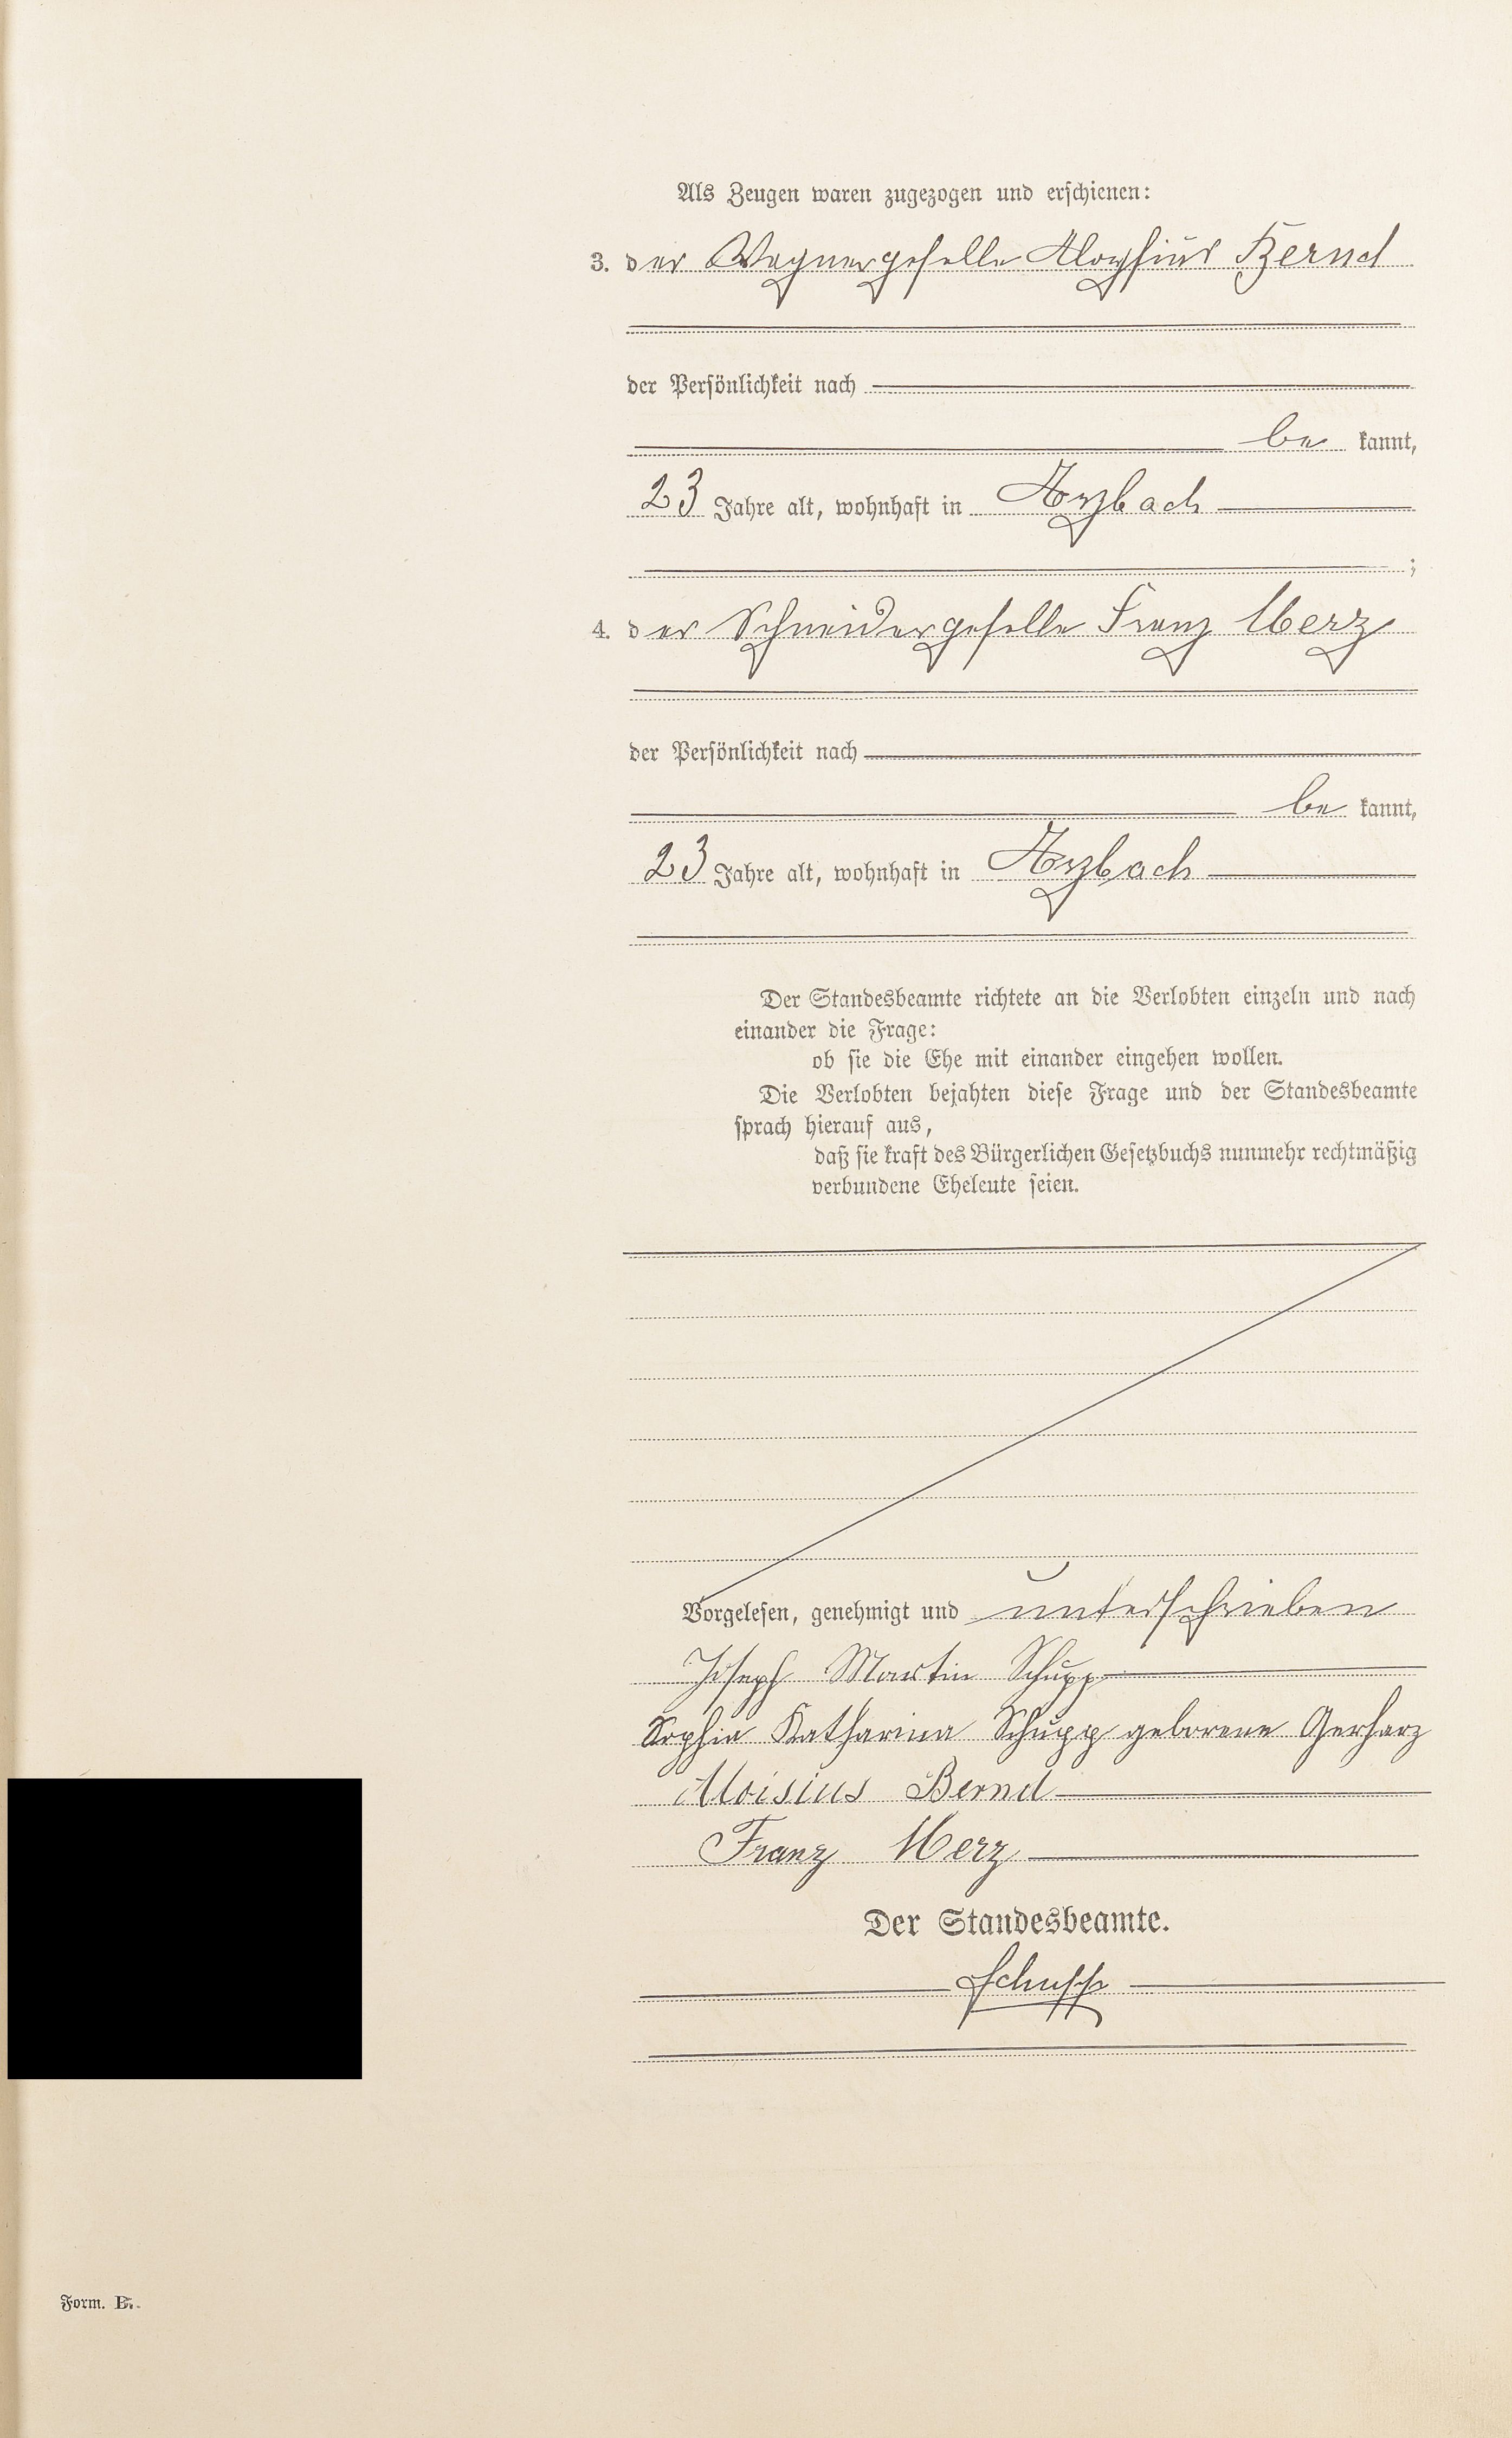 Als Zeugen waren zugezogen und erschienen:
3. der Wagnergeselle Aloysius Bernd
der Persönlichkeit nach
be kannt,
23 Jahre alt, wohnhaft in Arzbach
;
4. der Schneidergeselle Franz Merz
der Persönlichkeit nach
be kannt,
23 Jahre alt, wohnhaft in Arzbach
Der Standesbeamte richtete an die Verlobten einzeln und nach
einander die Frage:
ob sie die Ehe mit einander eingehen wollen.
Die Verlobten bejahten diese Frage und der Standesbeamte
sprach hierauf aus,
daß sie kraft des Bürgerlichen Gesetzbuchs nunmehr rechtmäßig
verbundene Eheleute seien.
Vorgelesen, genehmigt und unterschrieben
Joseph Martin Schupp
Sophia Katharina Schupp geborene Gerharz
Aloisius Bernd
Franz Merz
Der Standesbeamte.
Schupp
Form. B.